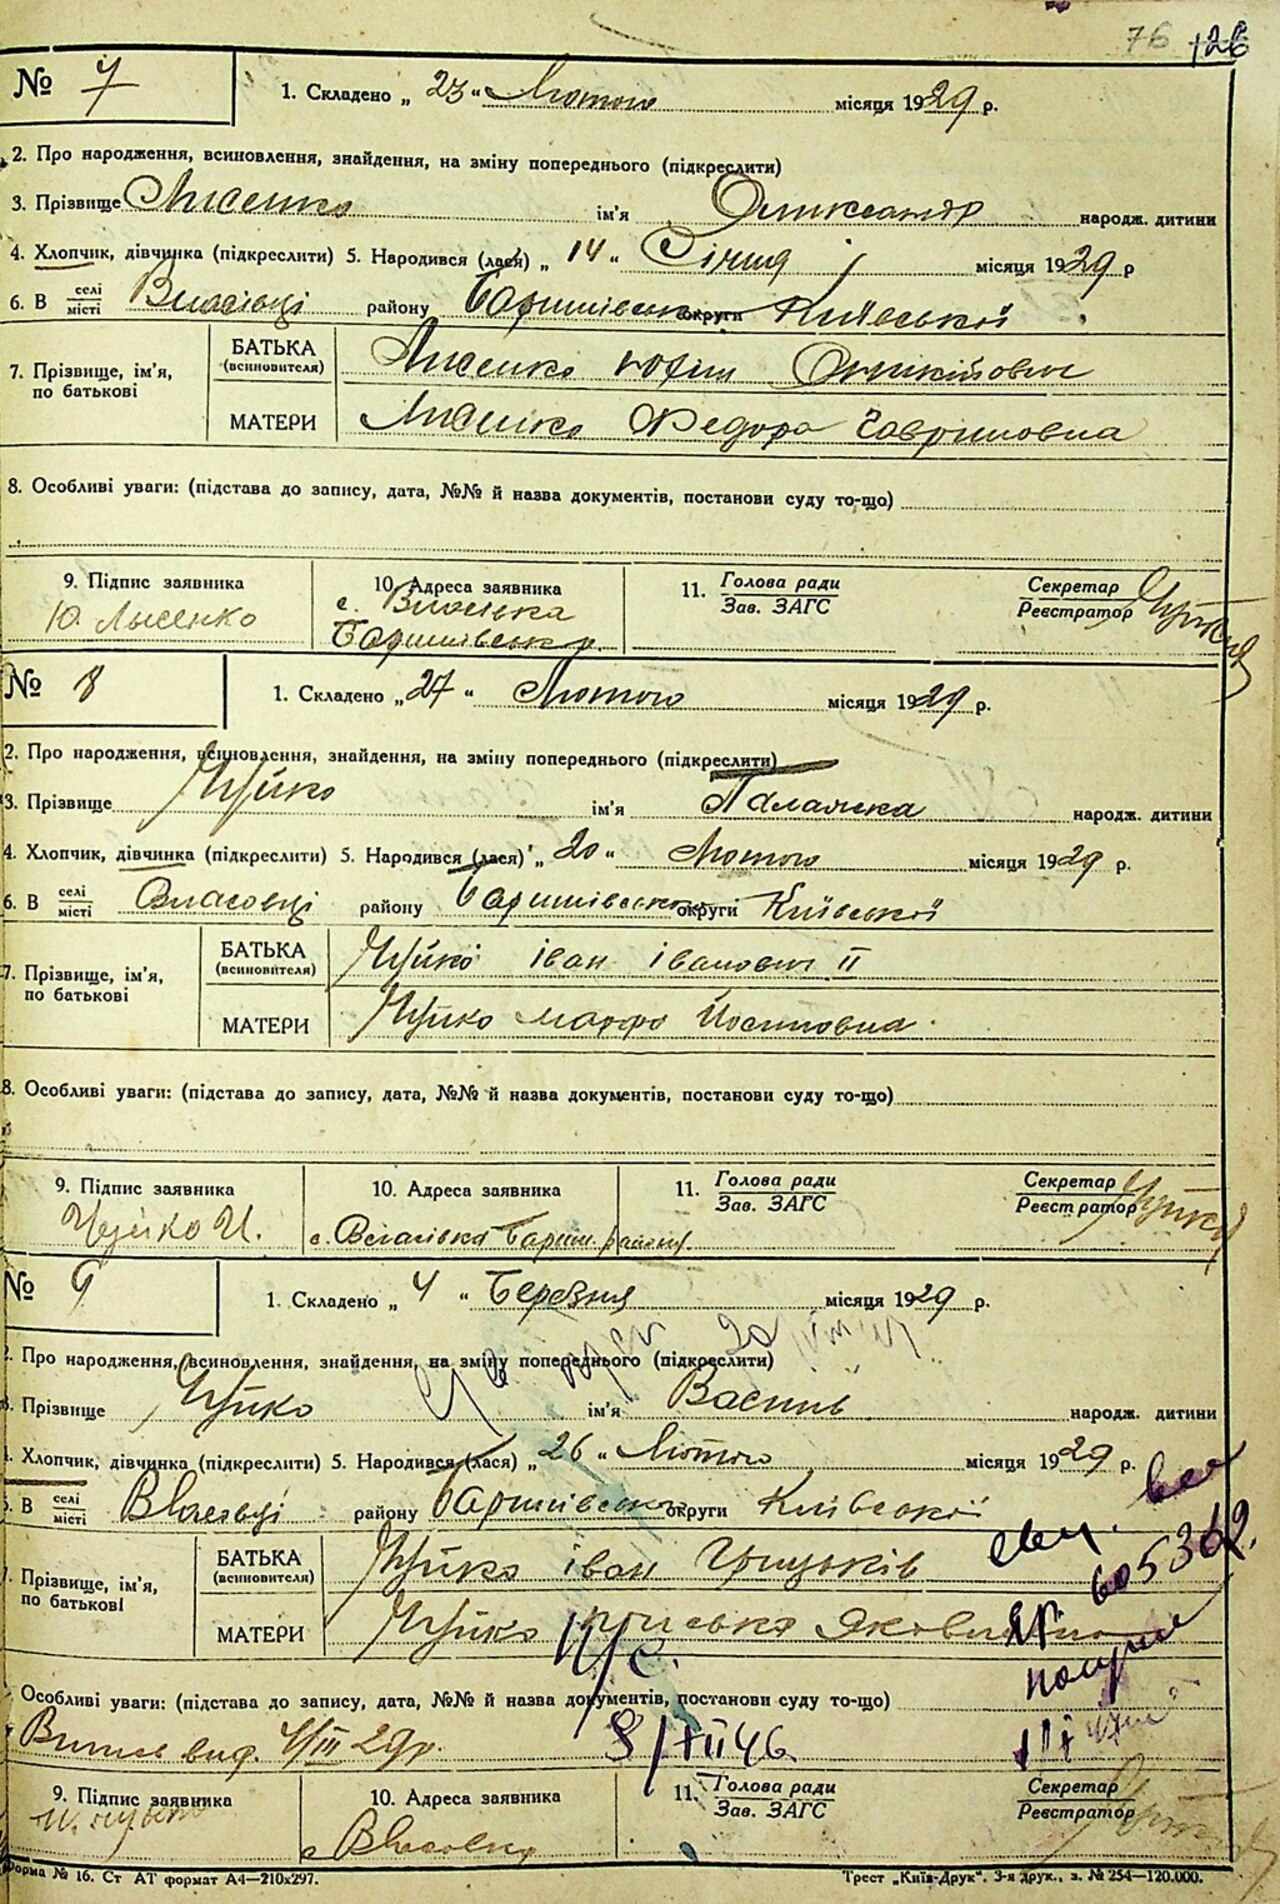 76 126
№ 7
1. Складено „ 23 “ Лютого місяця 1929 р.
2. Про народження, всиновлення, знайдення, на зміну попереднього (підкреслити)
3. Прізвище Лисенко ім'я Олександр народж. дитини
4. Хлопчик, дівчинка (підкреслити) 5. Народився (лася) „ 14 “ Січня місяця 1929 р
6. В селі/місті Власівці району Баришівськ округи Київської
БАТЬКА (всиновителя) Лисенко Юхім
7. Прізвище, ім'я, по батькові
МАТЕРИ Лисенко Федора Гавриловна
8. Особливі уваги: (підстава до запису, дата, №№ й назва документів, постанови суду то-що)
9. Підпис заявника 10. Адреса заявника 11. Голова ради/Зав. ЗАГС Секретар/Реєстратор
Ю. Лысенко с. Власівка
Баришівськ р.
№ 8
1. Складено „ 27 “ Лютого місяця 1929 р.
2. Про народження, всиновлення, знайдення, на зміну попереднього (підкреслити)
3. Прізвище Чуйко ім'я Палажка народж. дитини
4. Хлопчик, дівчинка (підкреслити) 5. Народився (лася) „ 20 “ Лютого місяця 1929 р.
6. В селі/місті Власовці району Баришівськ округи Київської
БАТЬКА (всиновителя) Чуйко іван іванович II
7. Прізвище, ім'я, по батькові
МАТЕРИ Чуйко марфа Йосиповна
8. Особливі уваги: (підстава до запису, дата, №№ й назва документів, постанови суду то-що)
9. Підпис заявника 10. Адреса заявника 11. Голова ради/Зав. ЗАГС Секретар/Реєстратор
Чуйко И. с. Власівка Бариш. району
№ 9
1. Складено „ 4 “ Березня місяця 1929 р.
2. Про народження, всиновлення, знайдення, на зміну попереднього (підкреслити)
3. Прізвище Чуйко ім'я Василь народж. дитини
4. Хлопчик, дівчинка (підкреслити) 5. Народився (лася) „ 26 “ Лютого місяця 1929 р.
6. В селі/місті Власівці району Баришівськ округи Київської
605362.
БАТЬКА (всиновителя) Чуйко іван Грицьків
7. Прізвище, ім'я, по батькові
МАТЕРИ Чуйко Яковлівна
Особливі уваги: (підстава до запису, дата, №№ й назва документів, постанови суду то-що)
Випис вид. 4/III 29р. 8/VII 46.
9. Підпис заявника 10. Адреса заявника 11. Голова ради/Зав. ЗАГС Секретар/Реєстратор
с Власовка
Форма № 16. Ст АТ формат А4—210х297. Трест „Київ-Друк“. 3-я друк., з. № 254—120.000.